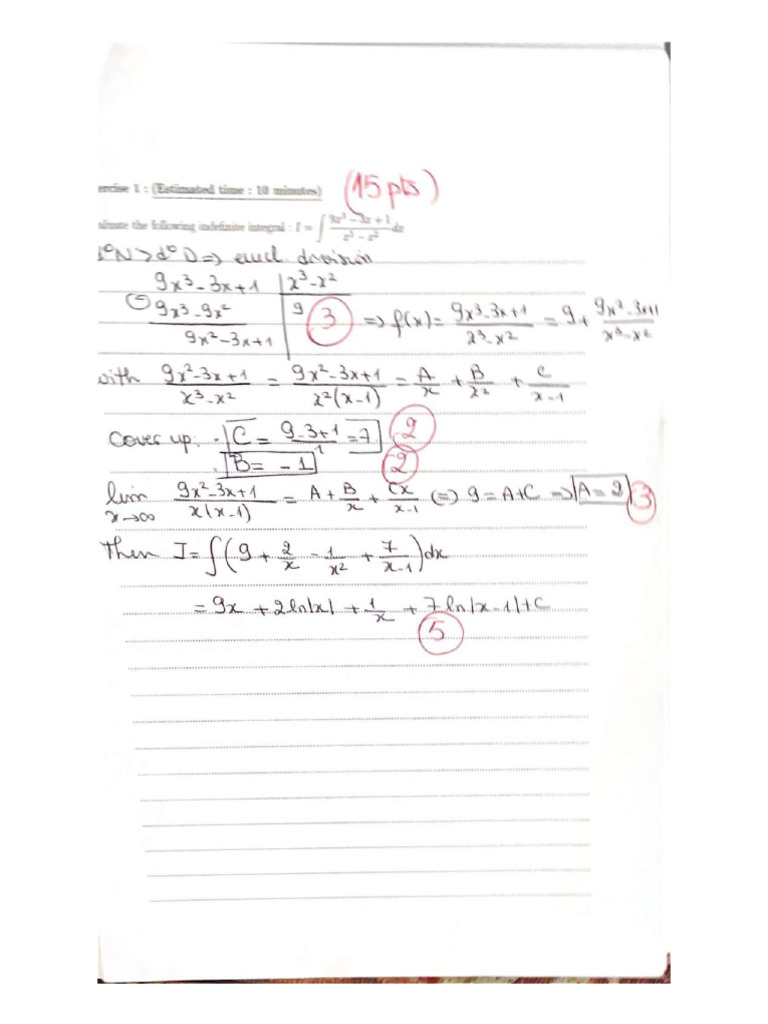 ercise 1 : (Estimated time : 10 minutes) (15 pts)
aluate the following indefinite integral : I = ∫ (9x³ − 3x + 1)/(x³ − x²) dx
d°N > d°D => eucl. division
9x³ - 3x + 1 | x³ - x²
⊖ 9x³ - 9x² | 9 (3) => f(x) = (9x³ - 3x + 1)/(x³ - x²) = 9 + (9x² - 3x + 1)/(x³ - x²)
9x² - 3x + 1
with (9x² - 3x + 1)/(x³ - x²) = (9x² - 3x + 1)/(x²(x - 1)) = A/x + B/x² + C/(x - 1)
Cover up: · C = (9 - 3 + 1)/1 = 7 (2)
· B = - 1 (2)
lim x→∞ (9x² - 3x + 1)/(x(x - 1)) = A + B/x + Cx/(x - 1) <=> 9 = A + C => A = 2 (3)
Then I = ∫ (9 + 2/x - 1/x² + 7/(x - 1)) dx
= 9x + 2ln|x| + 1/x + 7ln|x - 1| + C
(5)